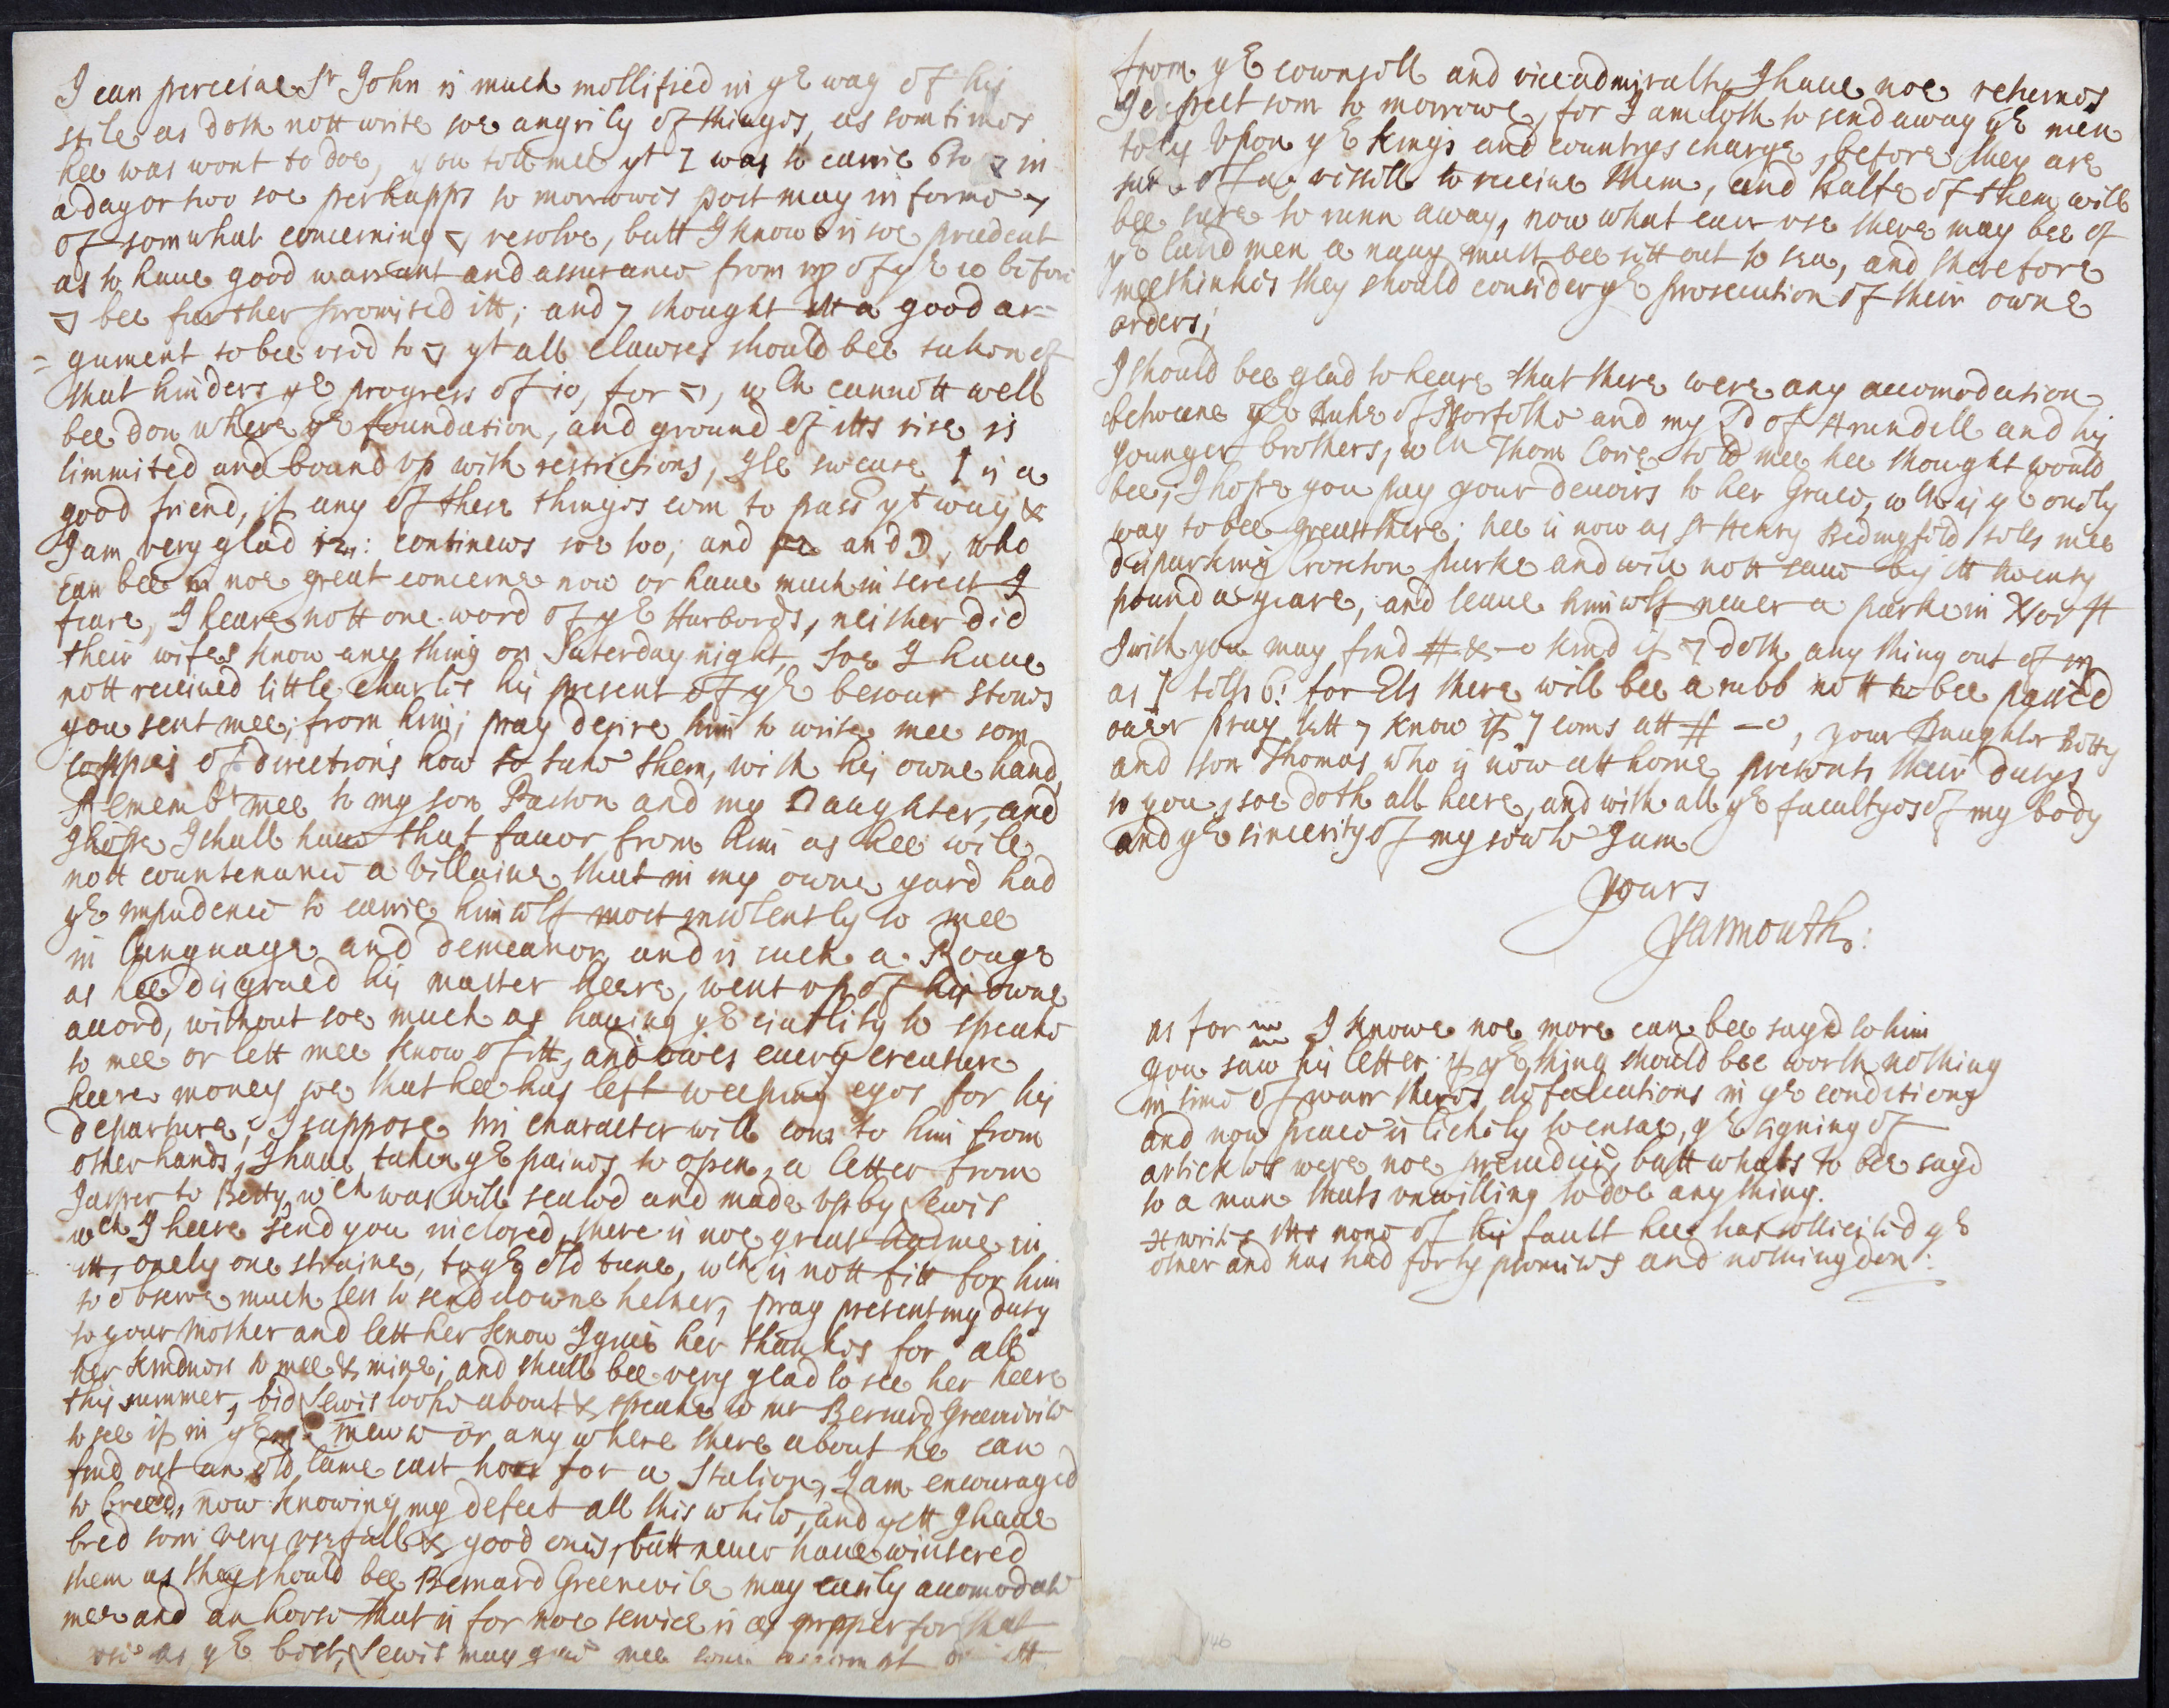 I can perceive Sr John is much mollified in ye way of his
stile as doth nott write soe angrily of thinges, as somtimes
hee was wont to doe, you told mee yt I was to carrie in
a day or two soe perhapps to morrowes post may informe
of somwhat concerning resolve, butt I know is soe prudent
as to have good warrant and assurance from of ye 10 before
bee further promised itt; and 7 thought itt a good ar=
=gument to bee used to yt all clawses should bee taken of
that hinders ye progress of 10, for , wch cannott well
bee don where ye foundation, and ground of itts rise is
limmited and bound up with restrictions, Ile sweare is a
good friend, if any of these thinges com to pass yt way &
I am very glad : continews soe too; and and D, who
can bee noe great concerne now or have much interest I
feare, I heare nott one word of ye Harbords, neither did
their wifes know any thing on Saterday night, soe I have
nott received little Charles his present of ye besoar stones
you sent mee; from him; pray desire him to write mee som
coppies of directions how to take them, with his owne hand,
Rememb mee to my son Paston and my Daughter, and
I hope I shall have that favor from him as hee will
nott countenance a Villaine that in my owne yard had
ye impudence to carrie himself most insolently to mee
in language and demeanor, and is such a Rouge
as hee disgraced his master heere, went up of his owne
accord, without soe much as having ye civillity to speake
to mee or lett mee know of itt, and owes every creature
heere money soe that hee has left weeping eyes for his
departure; I suppose his character will com to him from
other hands, I have taken ye paines to open a letter from
Jasper to Betty wch was well sealed and made up by Lewis
wch I heere send you inclosed, there is noe great harme in
itt, onely one straine, to ye old tune, wch is nott fitt for him
to observe much less to send downe hether, pray present my duty
to your Mother and lett her know I give her thankes for all
her kindness to mee & mine; and shall bee very glad to see her heere
this summer, bid Lewis looke about & speake to mr Bernard Greenevile
to see if in ye mewse or any where there about he can
find out an old lame cast hors for a Stalion, I am encouraged
to breed, now knowing my defect all this while, and yett I have
bred som very usefull & good ones, butt never have wintered
them as they should bee Bernard Greenevile may easily accomodate
mee and an horse that is for noe service is as propper for that
use as ye best, Lewis may give mee som account of itt
from ye counsill and viceadmiralty I have noe returnes
I expect som to morrowe, for I am loth to send away ye men
to ly upon ye kings and countrys charge, before they are
sure of a vessill to receive them, and halfe of them will
bee sure to runn away, now what ever use there may bee of
ye land men a navy must bee sett out to sea, and therefore
meethinkes they should consider ye prosecution of their owne
orders;
I should bee glad to heare that there were any accomodation
betweene ye Duke of Norfolke and my Ld of Arundell and his
younger brothers, wch Thom Corie told mee hee thought would
bee; I hope you pay your devoirs to her Grace, wch is ye onely
way to bee greatt there; hee is now as Sr Henry Bedingfild tells mee
disparking Croxton Parke and will nott save by itt twenty
pound a yeare, and leave himself never a parke in Norff
I wish you may find # & kind if 7 doth any thing out of
as tells 6: for Els there will bee a rubb nott to bee passed
over pray lett 7 know if 7 coms att # , your Daughter Betty
and son Thomas who is now att home presents their dutys
to you, soe doth all heere, and with all ye facultyes of my body
and ye sincerity of my sowle I am
Yours
Yarmouth:
as for I knowe noe more can bee sayd to him
you saw his letter. if ye thing should bee worth nothing
in time of warr theres defalcations in ye conditions
and now peace is likely to ensue, ye signing of
articles were noe prejudice, butt whats to bee sayd
to a man thats unwilling to doe any thing.
writes itts none of his fault hee has sollicited ye
other and has had forty promises and nothing don:
146